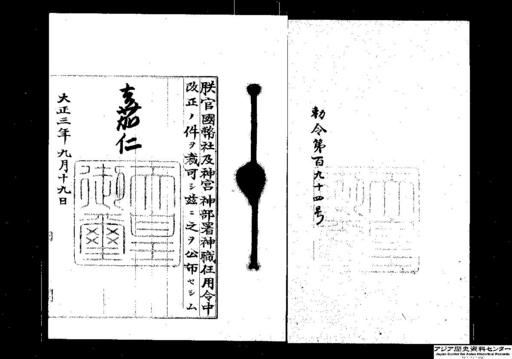 勅令第百九十四号
朕官國幣社及神宮神部署神職任用令中
改正ノ件ヲ裁可シ茲ニ之ヲ公布セシム
嘉仁
大正三年九月十九日
天皇
御璽
アジア歴史資料センター
Japan Center for Asian Historical Records